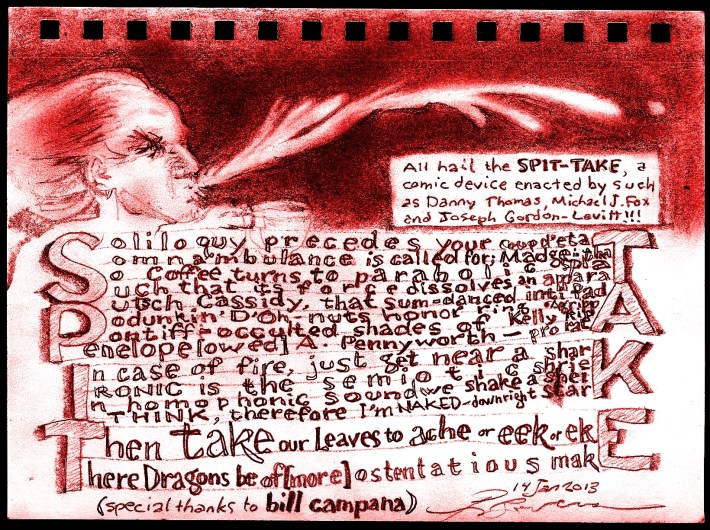 All hail the SPIT-TAKE, a
comic device enacted by such
as Danny Thomas, Michael J. Fox
and Joseph Gordon-Levitt!!!
SPIT
TAKE
oliloquy precedes your coup d'eta
omnambulance is called for; Madge, tha
o Coffee turns to parabolic spla
uch that its force dissolves an appara
utsch Cassidy, that sum-danced
odunkin' D'Oh-nuts honor
ontiff-occulted shades of Kelly
enelope [owed] A. Pennyworth - pro rat
n case of fire, just get near a shar
RONIC is the semiotic shrie
n homophonic sound we shake a
THINK, therefore I'm NAKED-downright star
hen take our Leaves to ache or eek or ek
here Dragons be of [more] ostentatious mak
14 Jan 2013
(special thanks to bill campana)